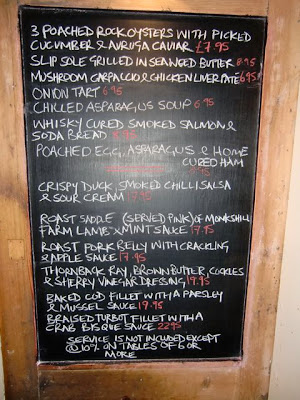 3 POACHED ROCK OYSTERS WITH PICKED
CUCUMBER & AVRUGA CAVIAR £7.95
SLIP SOLE GRILLED IN SEAWEED BUTTER 8.95
MUSHROOM CARPACCIO & CHICKEN LIVER PATÉ 6.95
ONION TART 6.95
CHILLED ASPARAGUS SOUP 6.95
WHISKY CURED SMOKED SALMON &
SODA BREAD
POACHED EGG, ASPARAGUS & HOME
CURED HAM
CRISPY DUCK, SMOKED CHILLI SALSA
& SOUR CREAM 17.95
ROAST SADDLE (SERVED PINK) OF MONKSHILL
FARM LAMB & MINT SAUCE 17.95
ROAST PORK BELLY WITH CRACKLING
& APPLE SAUCE 17.95
THORNBACK RAY, BROWN BUTTER, COCKLES
& SHERRY VINEGAR DRESSING 19.95
BAKED COD FILLET WITH A PARSLEY
& MUSSEL SAUCE 19.95
BRAISED TURBOT FILLET WITH A
CRAB BISQUE SAUCE 22.95
SERVICE IS NOT INCLUDED EXCEPT
@ 10% ON TABLES OF 6 OR
MORE